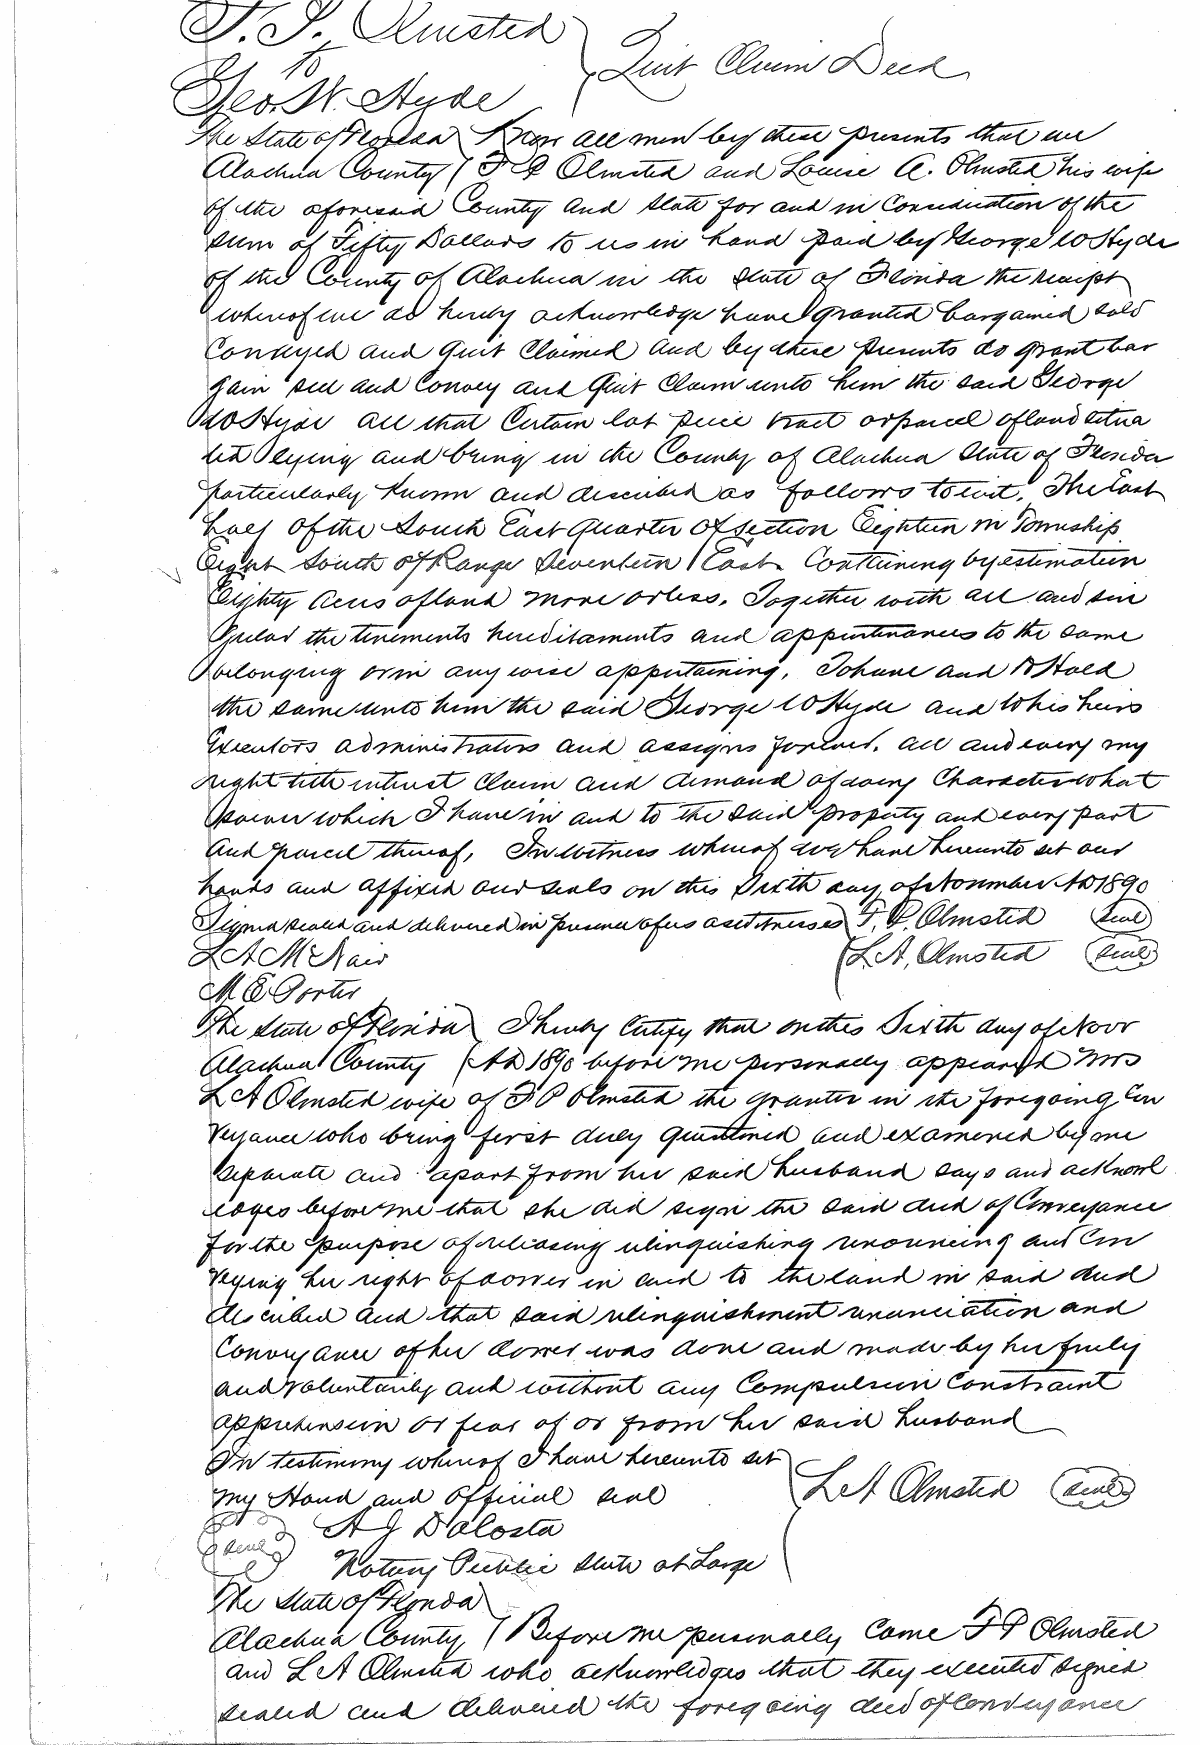 F. P. Olmsted
to
Geo. W. Hyde
Quit Claim Deed
The State of Florida Know all men by these presents that we
Alachua County F P Olmsted and Louise A. Olmsted his wife
of the aforesaid County and State for and in Consideration of the
sum of Fifty Dollars to us in hand paid by George W Hyde
of the County of Alachua in the State of Florida the receipt
whereof we do hereby acknowledge have granted bargained sold
Conveyed and Quit Claimed and by these presents do grant bar
gain sell and Convey and Quit Claim unto him the said George
W Hyde all that Certain lot piece tract or parcel of land situa
ted lying and being in the County of Alachua State of Florida
particularly Known and described as follows to wit, The East
half of the South East Quarter of Section Eighteen in Township
Eight South of Range Seventeen East Containing by estimation
Eighty Acres of land more or less. Together with all and sin
gular the tenements hereditaments and appurtenances to the same
belonging or in any wise appertaining, To have and to Hold
the same unto him the said George W Hyde and to his heirs
Executors administrators and assigns forever. all and every my
right title interest Claim and demand of every Character what
soever which I have in and to the said property and every part
and parcel thereof, In witness whereof we have hereunto set our
hands and affixed our seals on this Sixth day of November AD 1890
Signed sealed and delivered in presence of us as witnesses F. P. Olmsted Seal
L A McNair L. A. Olmsted Seal
M E Porter
The State of Florida I hereby Certify that on this Sixth day of Novr
Alachua County AD 1890 before me personally appeared Mrs
L A Olmsted wife of F P Olmsted the grantor in the foregoing Con
veyance who being first duly questioned and examined by me
separate and apart from her said husband says and acknowl
edges before me that she did sign the said deed of Conveyance
for the purpose of releasing relinquishing renouncing and Con
veying her right of dower in and to the land in said deed
described and that said relinquishment renunciation and
Conveyance of her dower was done and made by her freely
and voluntarily and without any Compulsion Constraint
apprehension or fear of or from her said husband
In testimony whereof I have hereunto set
my Hand and official seal L A Olmsted Seal
Seal A J DaCosta
Notary Public State at Large
The State of Florida
Alachua County, Before me personally Came F P Olmsted
and L A Olmsted who acknowledges that they executed signed
sealed and delivered the foregoing deed of Conveyance